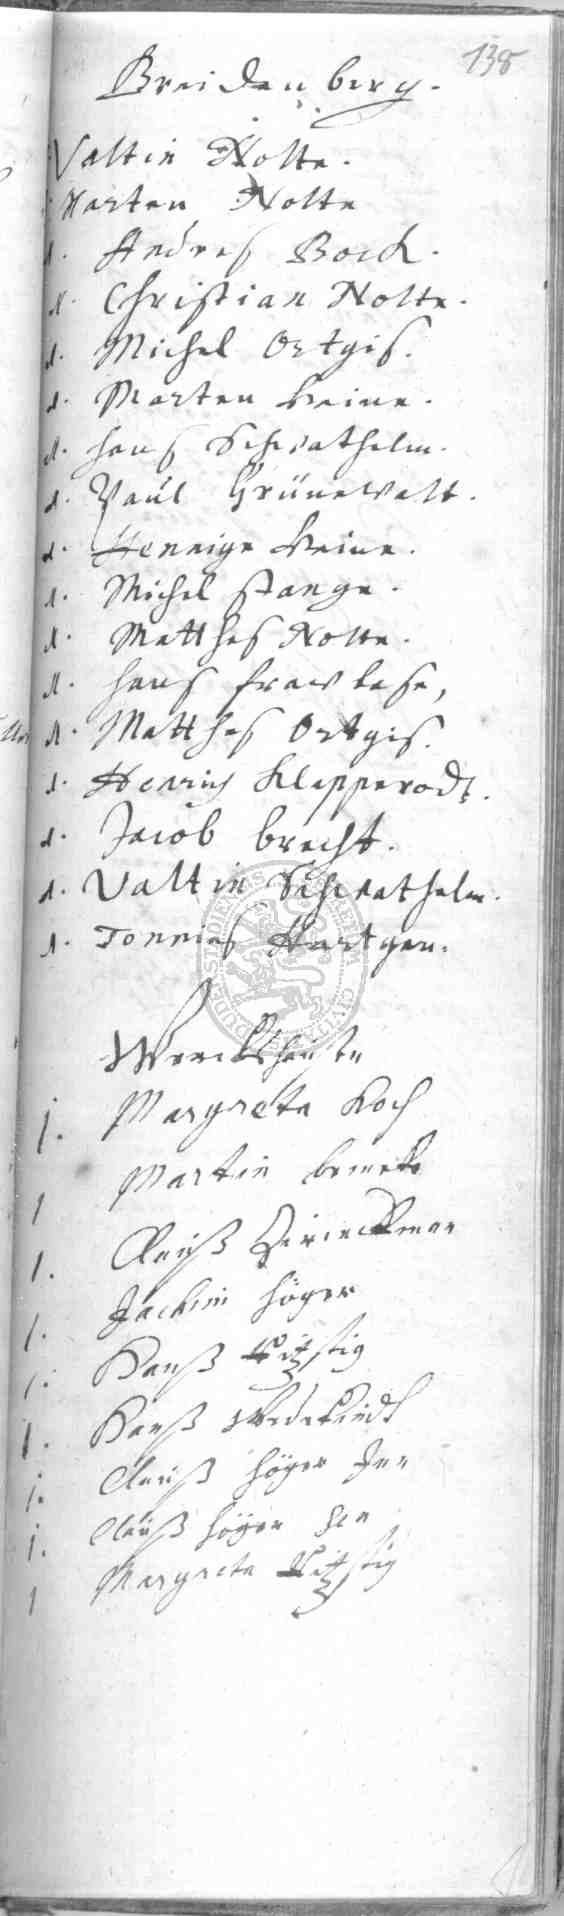 138
Breidenberg.
Valtin Nolte.
Marten Nolte
1. Andres Bock.
1. Christian Nolte.
1. Michel Ortgis.
1. Marten Heine.
1. Hans Schwathelm.
1. Paul Grünewalt.
1. Hennige Heine.
1. Michel Stange.
1. Matthes Nolte.
1. Hans
1. Matthes Ortgis.
1. Henrich Klapperodt.
1. Jacob brecht.
1. Valtin Schwathelm.
1. Tonnies Hartgen.
Werckshausen
1. Margreta Koch
1 Martin
1. Clauß
1. Jachim Höger
1. Hanß
1. Hanß Wedekindt
1. Clauß Höger Jun
1. Clauß Höger Sen
1 Margreta